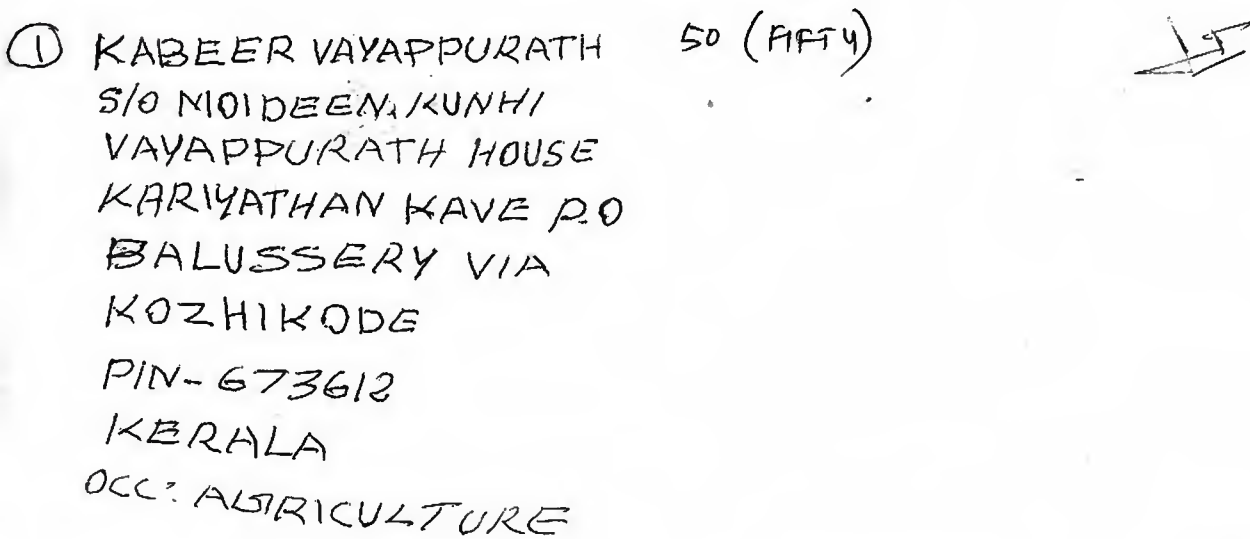 ① KABEER VAYAPPURATH 50 (FIFTY)
S/O MOIDEEN KUNHI
VAYAPPURATH HOUSE
KARIYATHAN KAVE P.O
BALUSSERY VIA
KOZHIKODE
PIN-673612
KERALA
OCC: AGRICULTURE